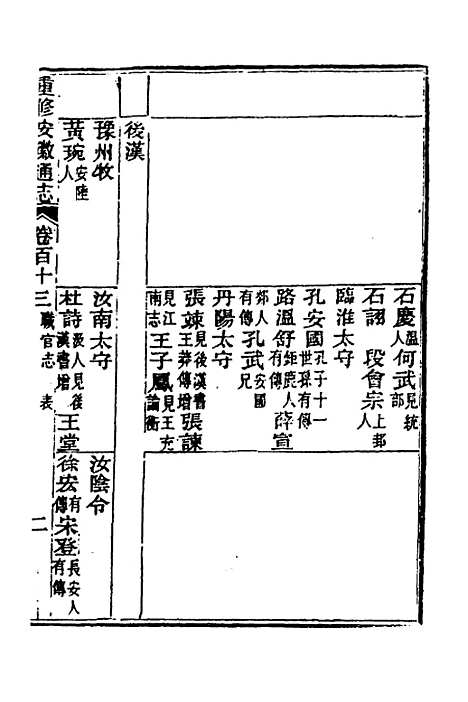 石慶溫人何武見統部
石詡　段會宗上邽人
臨淮太守
孔安國孔子十一世孫有傳
路溫舒鉅鹿人有傳薛宣
郯人有傳孔武安國兄
丹陽太守
張竦見後漢書王莽傳增張諫
見江南志王子鳳見王充論衡
後漢
豫州牧
汝南太守
汝陰令
黃琬安陸人
杜詩汲人見後漢書增王堂
徐宏有傳宋登長安人有傳
重修安徽通志　卷百十三　職官志　表　二